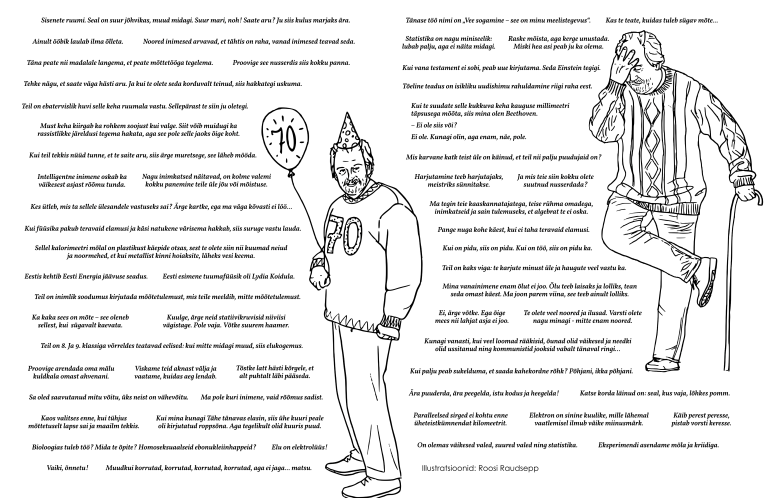 Sisenete ruumi. Seal on suur jõhvikas, muud midagi. Suur mari, noh! Saate aru? Ju siis kulus marjaks ära.
Ainult ööbik laulab ilma õlleta. Noored inimesed arvavad, et tähtis on raha, vanad inimesed teavad seda.
Täna peate nii madalale langema, et peate mõttetööga tegelema. Proovige see nusserdis siis kokku panna.
Tehke nägu, et saate väga hästi aru. Ja kui te olete seda korduvalt teinud, siis hakkategi uskuma.
Teil on ebatervislik huvi selle keha ruumala vastu. Sellepärast te siin ju oletegi.
Must keha kiirgab ka rohkem soojust kui valge. Siit võib muidugi ka
rassistlikke järeldusi tegema hakata, aga see pole selle jaoks õige koht.
Kui teil tekkis nüüd tunne, et te saite aru, siis ärge muretsege, see läheb mööda.
Intelligentne inimene oskab ka
väikesest asjast rõõmu tunda.
Nagu inimkatsed näitavad, on kolme valemi
kokku panemine teile üle jõu või mõistuse.
Kes ütleb, mis ta sellele ülesandele vastuseks sai? Ärge kartke, ega ma väga kõvasti ei löö...
Kui füüsika pakub teravaid elamusi ja käsi natukene värisema hakkab, siis suruge vastu lauda.
Sellel kalorimeetri mõlal on plastikust käepide otsas, sest te olete siin nii kuumad neiud
ja noormehed, et kui metallist kinni hoiaksite, läheks vesi keema.
Eestis kehtib Eesti Energia jäävuse seadus. Eesti esimene tuumafüüsik oli Lydia Koidula.
Teil on inimlik soodumus kirjutada mõõtetulemust, mis teile meeldib, mitte mõõtetulemust.
Ka kaka sees on mõte – see oleneb
sellest, kui sügavalt kaevata.
Kuulge, ärge neid statiivikruvisid niiviisi
vägistage. Pole vaja. Võtke suurem haamer.
Teil on 8. Ja 9. klassiga võrreldes teatavad eelised: kui mitte midagi muud, siis elukogemus.
Proovige arendada oma mälu
kuldkala omast ahvenani.
Viskame teid akmast välja ja
vaatame, kuidas aeg lendab.
Tõstke latt hästi kõrgele, et
alt puhtalt läbi pääseda.
Sa oled saavutanud mitu võitu, üks neist on vähevõitu. Ma pole kuri inimene, vaid rõõmus sadist.
Kaos valitses enne, kui tühjus
mõttetuselt lapse sai ja maailm tekkis.
Kui mina kunagi Tähe tänavas elasin, siis ühe kuuri peale
oli kirjutatud roppsõna. Aga tegelikult olid kuuris puud.
Bioloogias tuleb töö? Mida te õpite? Homoseksuaalseid ebanukleiinhappeid? Elu on elektrolüüs!
Vaiki, õnnetu! Muudkui korrutad, korrutad, korrutad, korrutad, aga ei jaga... matsu.
70
70
Tänase töö nimi on „Vee sogamine – see on minu meelistegevus“. Kas te teate, kuidas tuleb sügav mõte...
Statistika on nagu miniseelik:
lubab palju, aga ei näita midagi.
Raske mõista, aga kerge unustada.
Miski hea asi peab ju ka olema.
Kui vana testament ei sobi, peab uue kirjutama. Seda Einstein tegigi.
Tõeline teadus on isikliku uudishimu rahuldamine riigi raha eest.
Kui te suudate selle kukkuva keha kauguse millimeetri
täpsusega mõõta, siis mina olen Beethoven.
– Ei ole siis või?
Ei ole. Kunagi olin, aga enam, näe, pole.
Mis karvane katk teist üle on käinud, et teil nii palju puudujaid on?
Harjutamine teeb harjutajaks,
meistriks sünnitakse.
Ja mis teie siin kokku olete
suutnud nusserdada?
Ma tegin teie kaaskannatajatega, teise rühma omadega,
inimkatseid ja sain tulemuseks, et algebrat te ei oska.
Pange nuga kohe käest, kui ei taha teravaid elamusi.
Kui on pidu, siis on pidu. Kui on töö, siis on pidu ka.
Teil on kaks viga: te karjute minust üle ja haugute veel vastu ka.
Mina vanainimene enam õlut ei joo. Õlu teeb laisaks ja lolliks, tean
seda omast käest. Ma joon parem viina, see teeb ainult lolliks.
Ei, ärge võtke. Ega õige
mees nii lahjat asja ei joo.
Te olete veel noored ja ilusad. Varsti olete
nagu minagi - mitte enam noored.
Kunagi vanasti, kui veel loomad rääkisid, õunad olid väikesed ja needki
olid ussitanud ning kommunistid jooksid vabalt tänaval ringi...
Kui palju peab sukelduma, et saada kahekordne rõhk? Põhjani, ikka põhjani.
Ära puuderda, ära peegelda, istu kodus ja heegelda! Katse korda läinud on: seal, kus vaja, lõhkes pomm.
Paralleelsed sirged ei kohtu enne
üheteistkümnendat kilomeetrit.
Elektron on sinine kuulike, mille lähemal
vaatlemisel ilmub väike miinusmärk.
Käib perest peresse,
pistab vorsti keresse.
On olemas väikesed valed, suured valed ning statistika. Eksperimendi asendame mõla ja kriidiga.
Illustratsioonid: Roosi Raudsepp